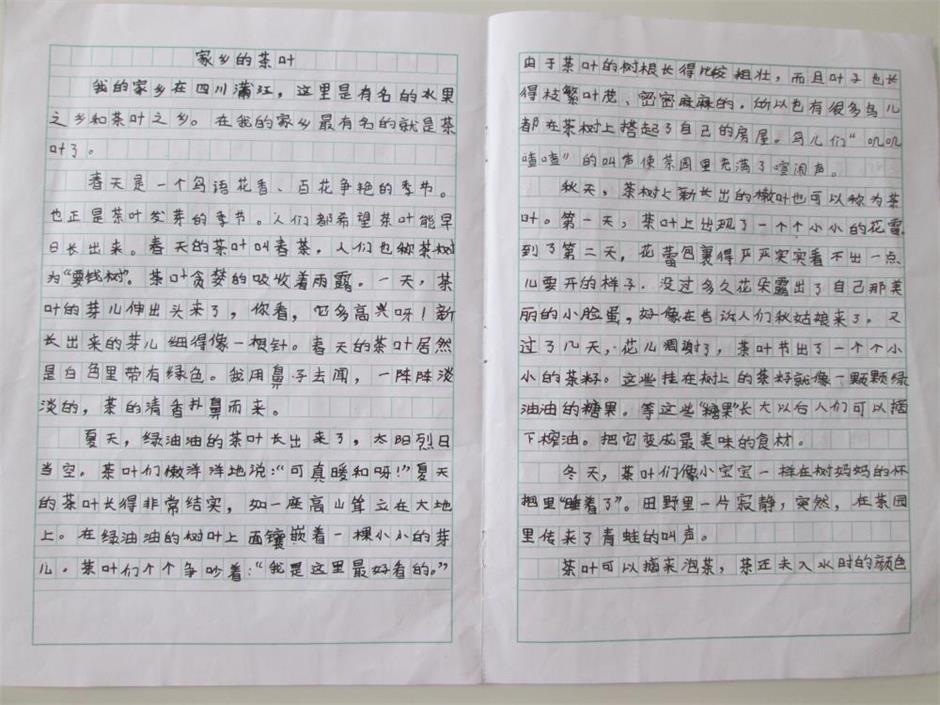 家乡的茶叶
我的家乡在四川蒲江，这里是有名的水果
之乡和茶叶之乡。在我的家乡最有名的就是茶
叶了。
春天是一个鸟语花香、百花争艳的季节。
也正是茶叶发芽的季节。人们都希望茶叶能早
日长出来。春天的茶叶叫春茶，人们也称茶树
为“要钱树”。茶叶贪婪的吸收着雨露。一天，茶
叶的芽儿伸出头来了，你看，它多高兴呀！新
长出来的芽儿细得像一根针。春天的茶叶居然
是白色里带有绿色。我用鼻子去闻，一阵阵淡
淡的，茶的清香扑鼻而来。
夏天，绿油油的茶叶长出来了，太阳烈日
当空。茶叶们懒洋洋地说：“可真暖和呀！”夏天
的茶叶长得非常结实，如一座高山耸立在大地
上。在绿油油的树叶上面镶嵌着一棵小小的芽
儿。茶叶们个个争吵着：“我是这里最好看的。”
由于茶叶的树根长得比较粗壮，而且叶子也长
得枝繁叶茂、密密麻麻的，所以也有很多鸟儿
都在茶树上搭起了自己的房屋。鸟儿们“叽叽
喳喳”的叫声使茶园里充满了喧闹声。
秋天，茶树上新长出的嫩叶也可以称为茶
叶。第一天，茶叶上出现了一个个小小的花蕾，
到了第二天，花蕾包裹得严严实实看不出一点
儿要开的样子．没过多久花朵露出了自己那美
丽的小脸蛋，好像在告诉人们秋姑娘来了。又
过了几天，花儿凋谢了，茶叶节出了一个个小
小的茶籽。这些挂在树上的茶籽就像一颗颗绿
油油的糖果。等这些“糖果”长大以后人们可以摘
下榨油。把它变成最美味的食材。
冬天，茶叶们像小宝宝一样在树妈妈的怀
抱里“睡着了”。田野里一片寂静，突然，在茶园
里传来了青蛙的叫声。
茶叶可以摘来泡茶，茶还未入水时的颜色